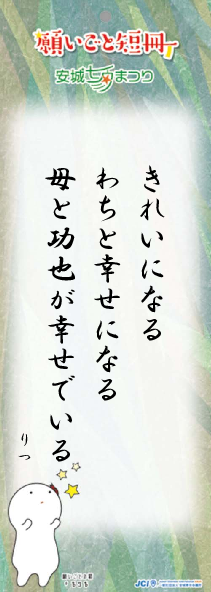 願いごと短冊
安城七夕まつり
きれいになる
わちと幸せになる
母と功也が幸せでいる
りつ
JCI